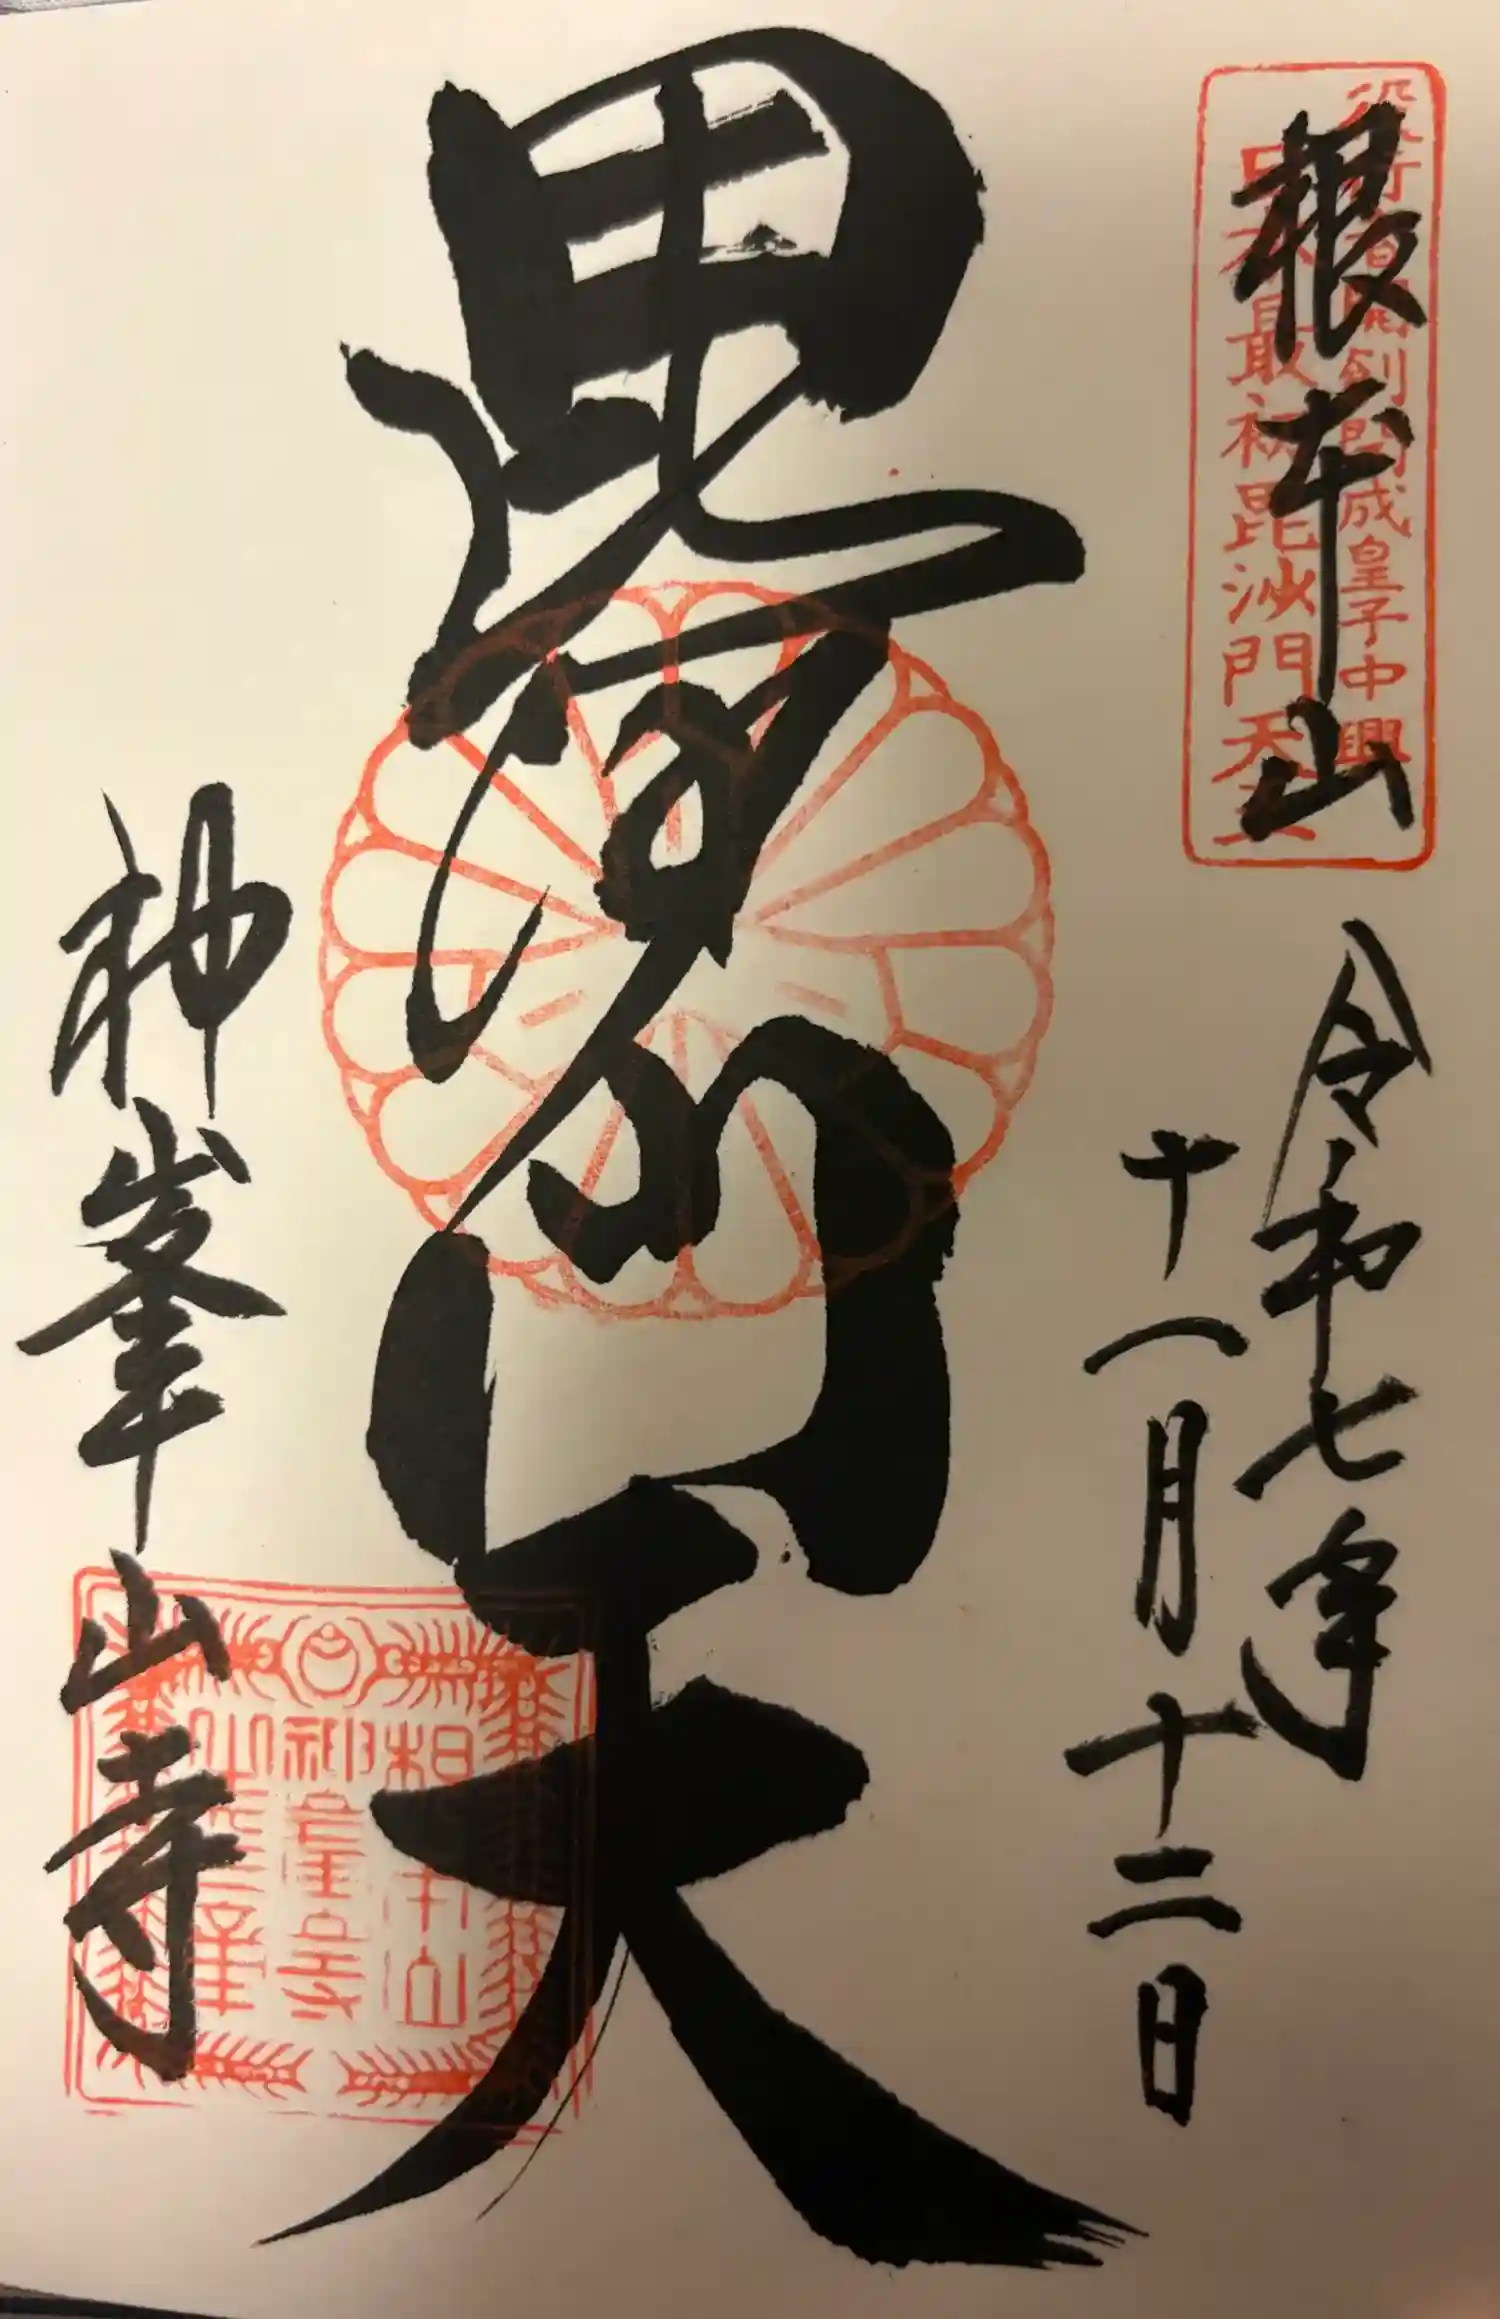 根本山
役行者開創開成皇子中興
日本最初毘沙門天
令和七年
十一月十二日
毘沙門天
神峯山寺
根本山
神峯山寺